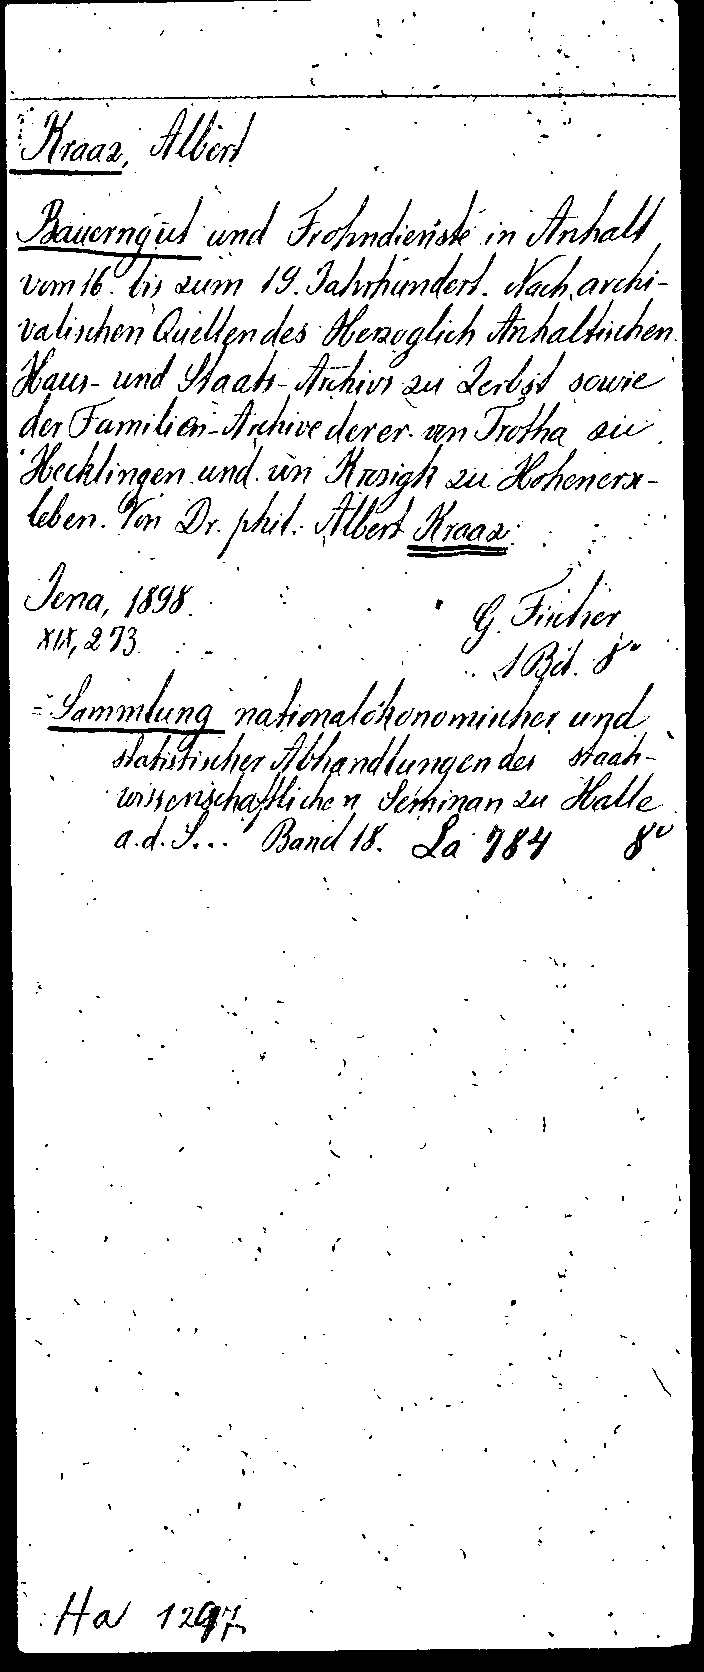 Kraaz, Albert
Bauerngut und Frohndienste in Anhalt
vom 16. bis zum 19. Jahrhundert. Nach archi-
valischen Quellen des Herzoglich Anhaltischen
Haus- und Staats-Archivs zu Zerbst sowie
der Familien-Archive derer von Trotha zu
Hecklingen und von Krosigk zu Hohenerx-
leben. Von Dr. phil. Albert Kraaz.
Jena, 1898. G. Fischer
XIX, 273 1 Bd. 8°
= Sammlung nationalökonomischer und
statistischer Abhandlungen des staats-
wissenschaftlichen Seminars zu Halle
a.d.S... Band 18. La 784 8°
Ha 1297